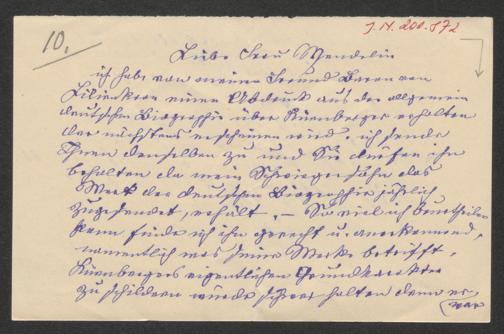 10.
J.N. 200.572
Liebe Frau Wendelin
ich habe von meinem Freund Baron von
Liliencron einen Abdruck aus der allgemein
deutschen Biografie über Kürnberger erhalten
der nächstens erscheinen wird, ich sende
Ihnen denselben zu und Sie dürfen ihn
behalten da mein Schwiegersohn das
Werk der deutschen Biografie jährlich
zugesendet, erhält. – So viel ich beurtheilen
kann finde ich ihn gerecht u. anerkennend,
namentlich was seine Werke betrifft,
Kürnbergers eigentlichen Grundkarakter
zu schildern würde schwer halten denn er
war